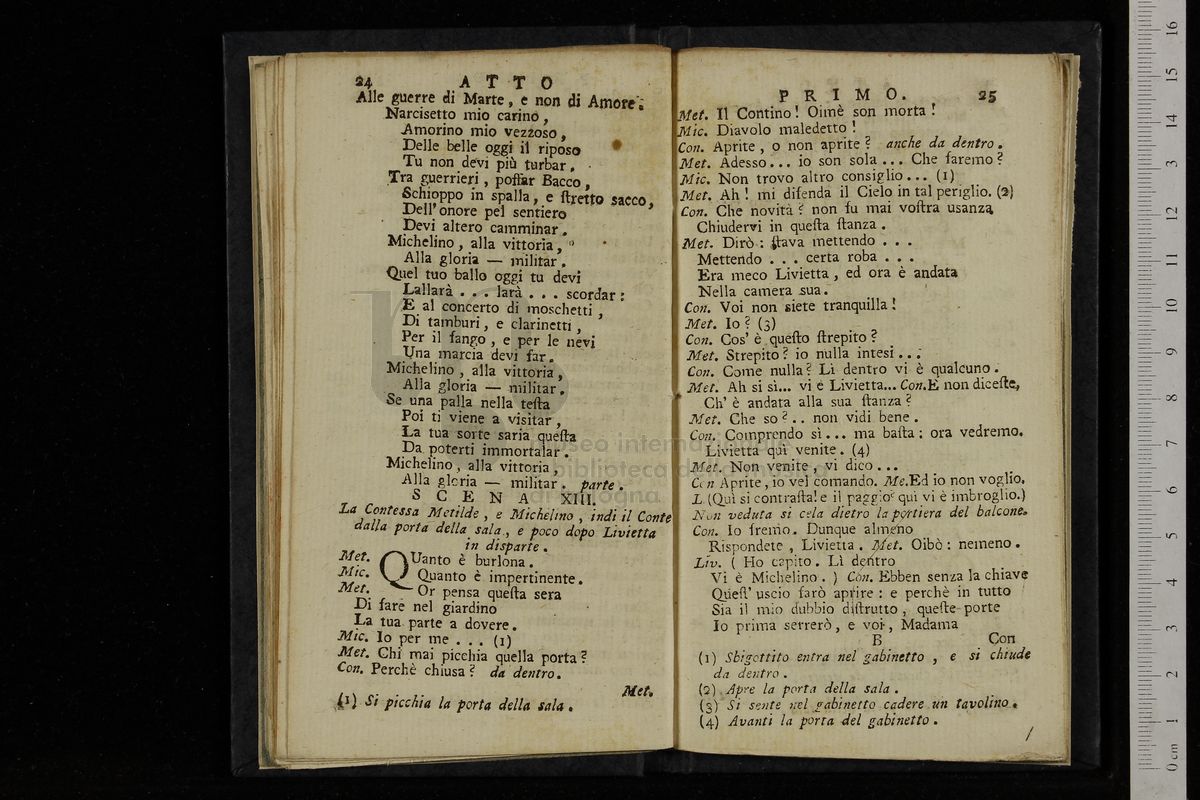 24 A T T O
Alle guerre di Marte, e non di Amore.
Narcisetto mio carino,
Amorino mio vezzoso,
Delle belle oggi il riposo
Tu non devi più turbar.
Tra guerrieri, poſſar Bacco,
Schioppo in spalla, e ſtretto sacco,
Dell'onore pel sentiero
Devi altero camminar.
Michelino, alla vittoria,
Alla gloria — militar.
Quel tuo ballo oggi tu devi
Lallarà . . . larà . . . scordar:
E al concerto di moschetti,
Di tamburi, e clarinetti,
Per il fango, e per le nevi
Una marcia devi far.
Michelino, alla vittoria,
Alla gloria — militar.
Se una palla nella teſta
Poi ti viene a visitar,
La tua sorte saria queſta
Da poterti immortalar.
Michelino, alla vittoria,
Alla gloria — militar. parte.
S C E N A XIII.
La Contessa Metilde, e Michelino, indi il Conte
dalla porta della sala, e poco dopo Livietta
in disparte.
Met. QUanto è burlona.
Mic. Quanto è impertinente.
Met. Or pensa queſta sera
Di fare nel giardino
La tua parte a dovere.
Mic. Io per me . . . (1)
Met. Chi mai picchia quella porta?
Con. Perchè chiusa? da dentro.
Met.
(1) Si picchia la porta della sala.
P R I M O. 25
Met. Il Contino! Oimè son morta!
Mic. Diavolo maledetto!
Con. Aprite, o non aprite? anche da dentro.
Met. Adesso... io son sola... Che faremo?
Mic. Non trovo altro consiglio... (1)
Met. Ah! mi difenda il Cielo in tal periglio. (2)
Con. Che novità? non fu mai voſtra usanza
Chiudervi in queſta ſtanza.
Met. Dirò: ſtava mettendo . . .
Mettendo . . . certa roba . . .
Era meco Livietta, ed ora è andata
Nella camera sua.
Con. Voi non siete tranquilla!
Met. Io? (3)
Con. Cos' è queſto ſtrepito?
Met. Strepito? io nulla intesi...
Con. Come nulla? Lì dentro vi è qualcuno.
Met. Ah si sì... vi è Livietta... Con. E non diceſte,
Ch' è andata alla sua ſtanza?
Met. Che so?.. non vidi bene.
Con. Comprendo sì... ma baſta: ora vedremo.
Livietta qui venite. (4)
Met. Non venite, vi dico...
Con Aprite, io vel comando. Me. Ed io non voglio.
L (Qui si contraſta! e il paggio? qui vi è imbroglio.)
Non veduta si cela dietro la portiera del balcone.
Con. Io fremo. Dunque almeno
Rispondete, Livietta. Met. Oibò: nemeno.
Liv. (Ho capito. Lì dentro
Vi è Michelino.) Con. Ebben senza la chiave
Queſt' uscio farò aprire: e perchè in tutto
Sia il mio dubbio diſtrutto, queſte porte
Io prima serrerò, e voi, Madama
B Con
(1) Sbigottito entra nel gabinetto, e si chiude
da dentro.
(2) Apre la porta della sala.
(3) Si sente nel gabinetto cadere un tavolino.
(4) Avanti la porta del gabinetto.
museo internazionale
biblioteca della musica
di bologna
0 cm 1 2 3 4 5 6 7 8 9 10 11 12 13 14 15 16